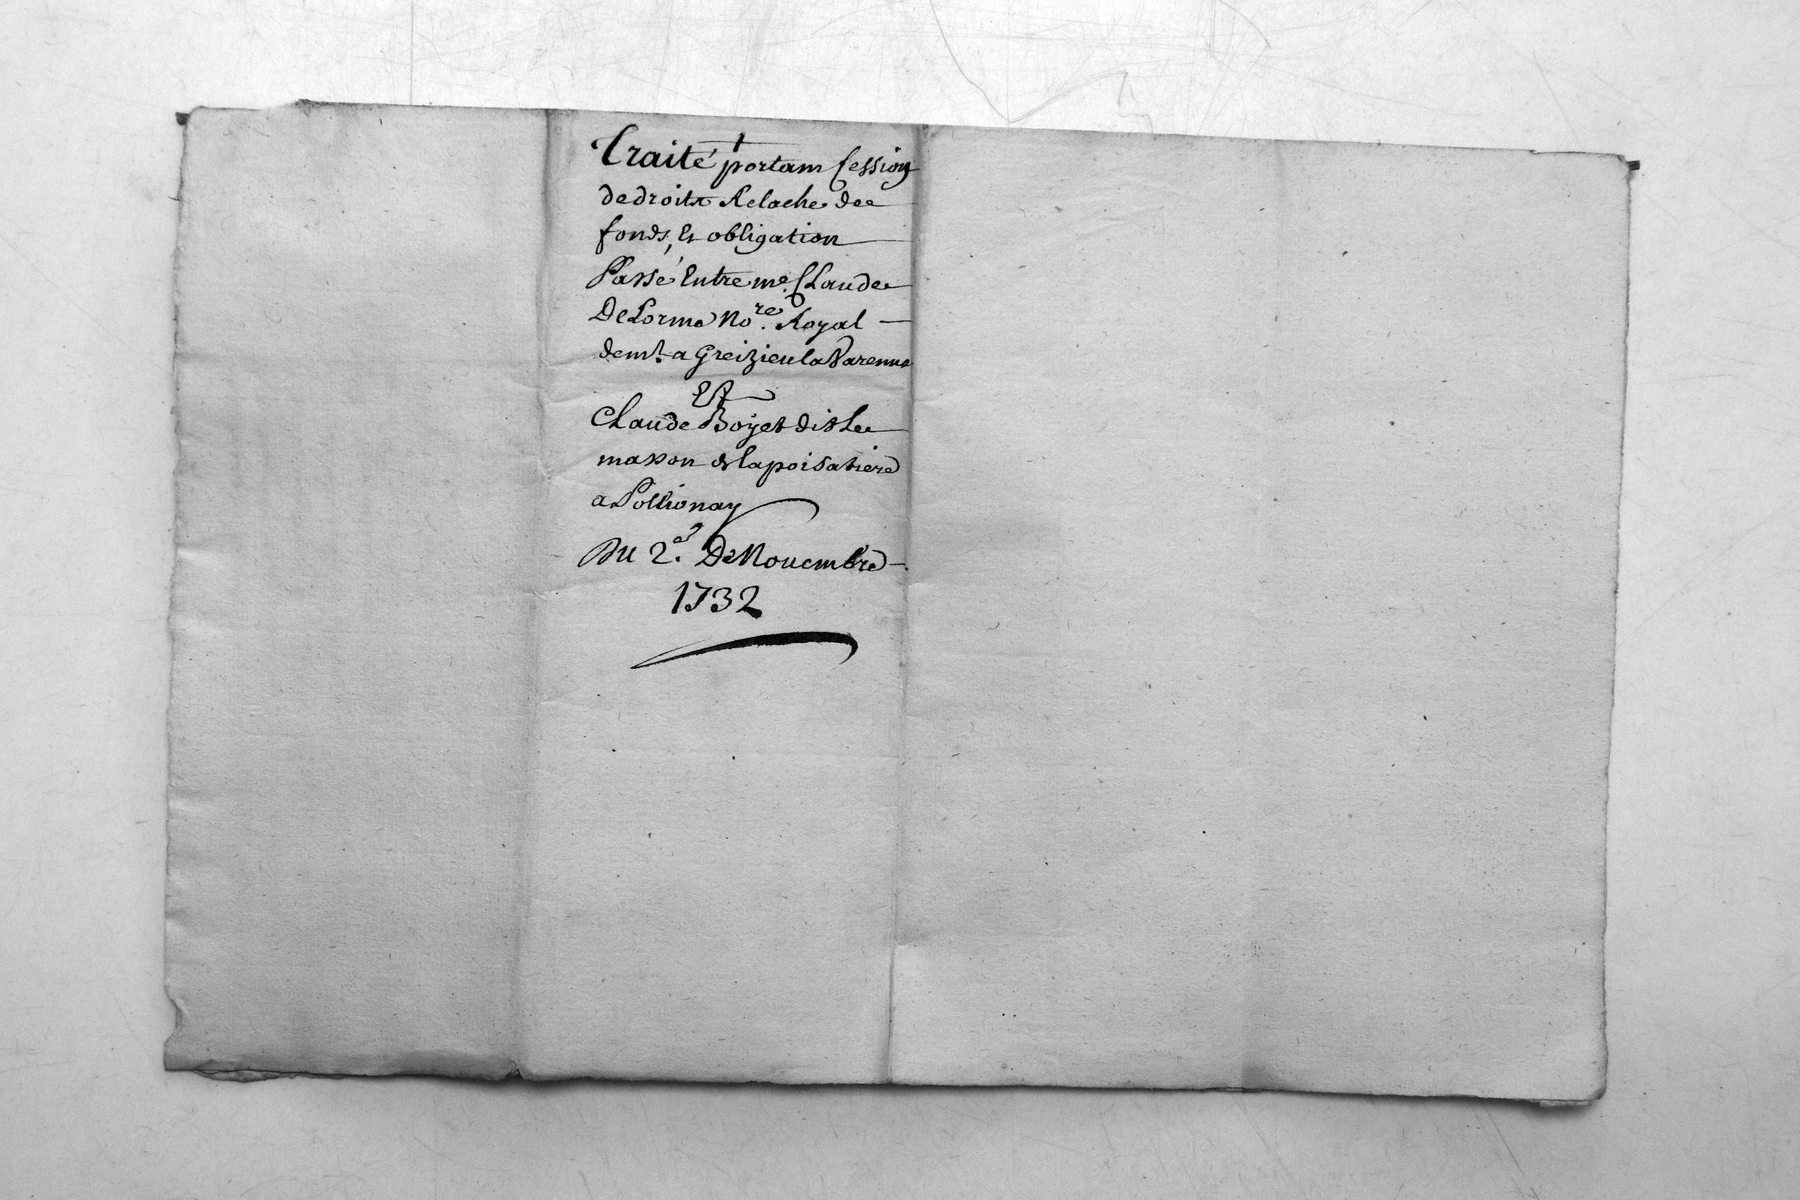 Traité portam Cession
de droits Relache de
fonds, Et obligation
Passé Entre me. Claude
DeLorme No.re Royal
demt. a Greizieu la Varenne
Et
Claude Boyet dit Le
masson de la poisatiere
a Pollionay
Du 2.e De Nouembre
1732